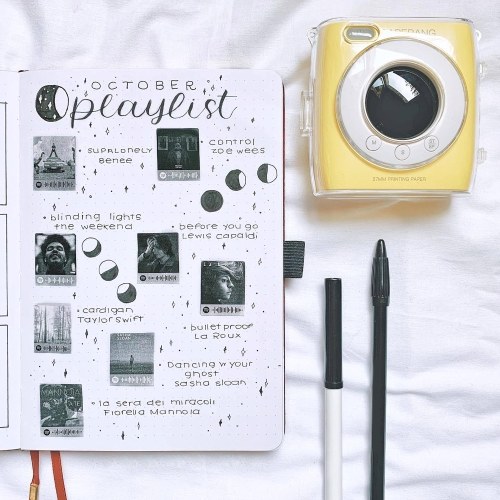 OCTOBER
playlist
• SUPALONELY
BENEE
• CONTROL
ZOE WEES
• blinding lights
the weekend
• before you go
Lewis capaldi
• cardigan
Taylor Swift
• bulletproof
La Roux
• Dancing w your
ghost
sasha sloan
• la sera dei miracoli
Fiorella Mannoia